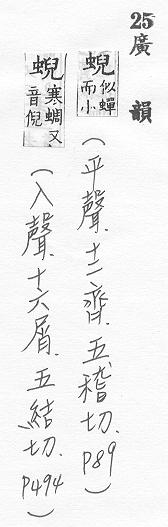 25廣韻
蜺似蟬而小（平聲.十二齊.五稽切.P89）
蜺寒蜩又音倪（入聲.十六屑.五結切.P494）